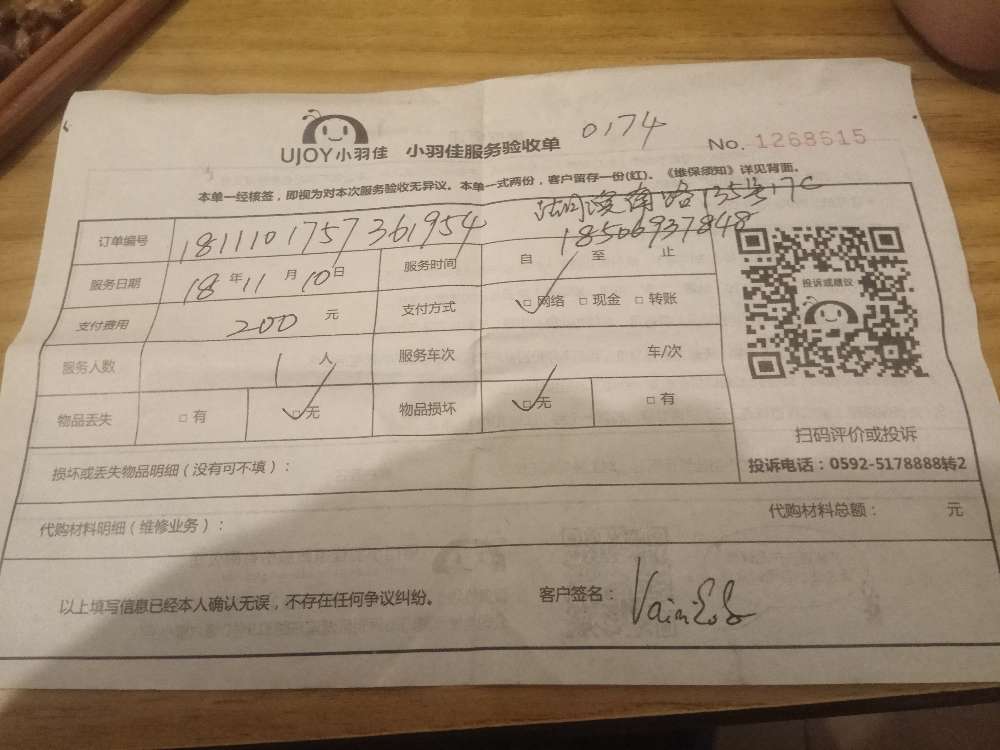 UJOY小羽佳 小羽佳服务验收单 0174
No. 1268615
本单一经核签，即视为对本次服务验收无异议。本单一式两份，客户留存一份(红)。《维保须知》详见背面。
路135号17C
18506937848
订单编号 181110175736 1954
服务日期 18年11月10日 服务时间 自 至 止
支付费用 200 元 支付方式 □网络 □现金 □转账
服务人数 1人 服务车次 车/次
物品丢失 □有 □无 物品损坏 □无 □有
投诉或建议
扫码评价或投诉
投诉电话：0592-5178888转2
损坏或丢失物品明细（没有可不填）：
代购材料明细（维修业务）： 代购材料总额： 元
以上填写信息已经本人确认无误，不存在任何争议纠纷。 客户签名：